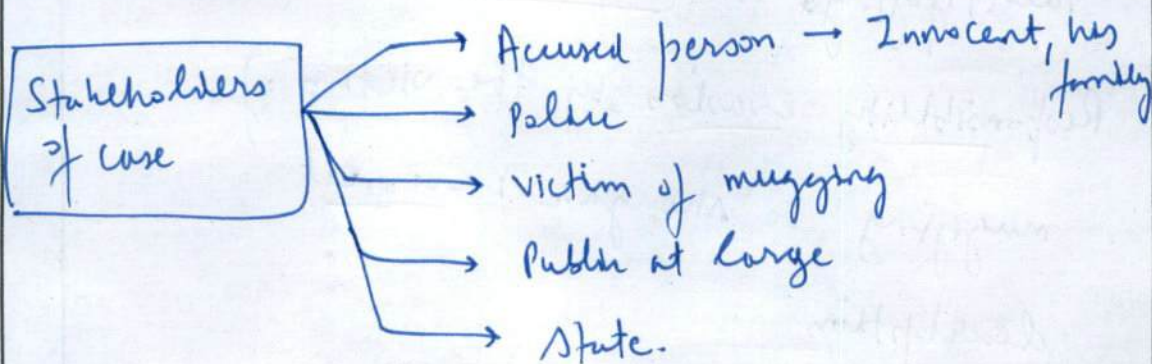 Stakeholders
of case
Accused person → Innocent, has
family
Police
victim of mugging
Public at large
State.